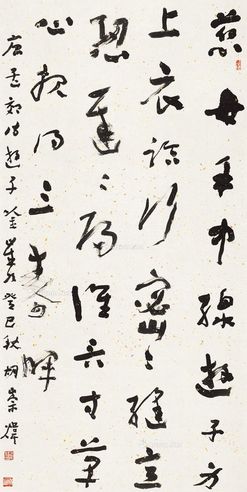 慈母手中線遊子身
上衣臨行密々縫意
恐遲々歸誰言寸草
心報得三春暉
唐孟郊詩遊子吟歲在癸巳秋胡崇煒